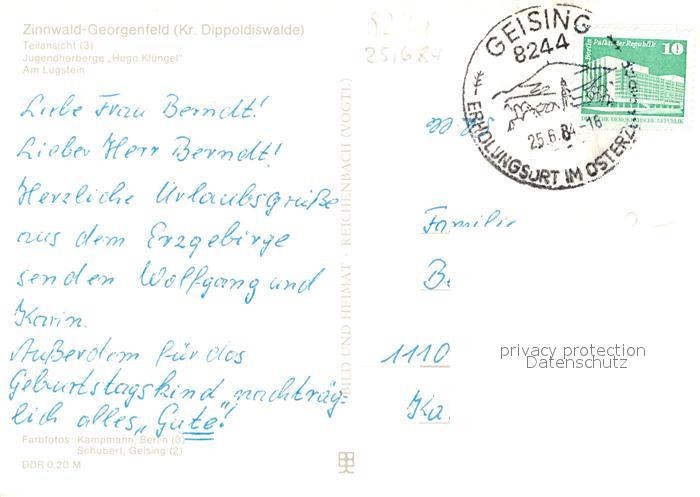 Zinnwald-Georgenfeld (Kr. Dippoldiswalde)
Teilansicht (3)
Jugendherberge „Hugo Klüngel"
Am Lugstein
Liebe Frau Berndt!
Lieber Herr Berndt!
Herzliche Urlaubsgrüße
aus dem Erzgebirge
senden Wolfgang und
Karin.
Außerdem für das
Geburtstagskind „nachträg-
lich alles „Gute"!
Farbfotos: Kampmann, Berlin (3)
Schubert, Geising (2)
DDR 0,20 M
BILD UND HEIMAT · REICHENBACH (VOGTL)
25.6.84
GEISING
8244
25.6.84-16
ERHOLUNGSORT IM OSTERZ
Berlin Palast der Republik
10
DEUTSCHE DEMOKRATISCHE REPUBLIK
Familie
Be
1110
Ka
privacy protection
Datenschutz